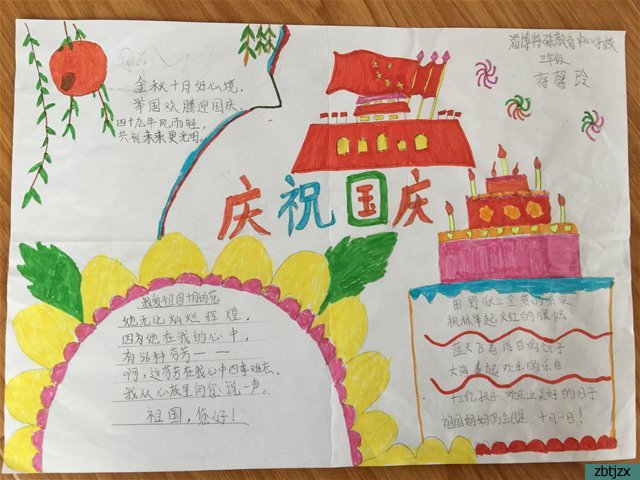 淄博特殊教育中心学校
三年级
蒋馨玲
金秋十月好心境,
举国欢腾迎国庆.
四十九年风雨轻,
共祝未来更光明。
庆祝国庆
我爱祖国十月的花
她无比灿烂辉煌,
因为她在我的心中,
有56种芬芳——
啊,这芬芳在我心中四季难忘,
我从心底里向您说一声。
祖国,您好!
田野献上金黄的果实
枫林举起火红的旗帜
蓝天飞着洁白的鸽子
大海奏起欢乐的乐曲
十三亿孩子欢庆这美好的日子
祖国妈妈的生日,十月一日!
zbtjzx